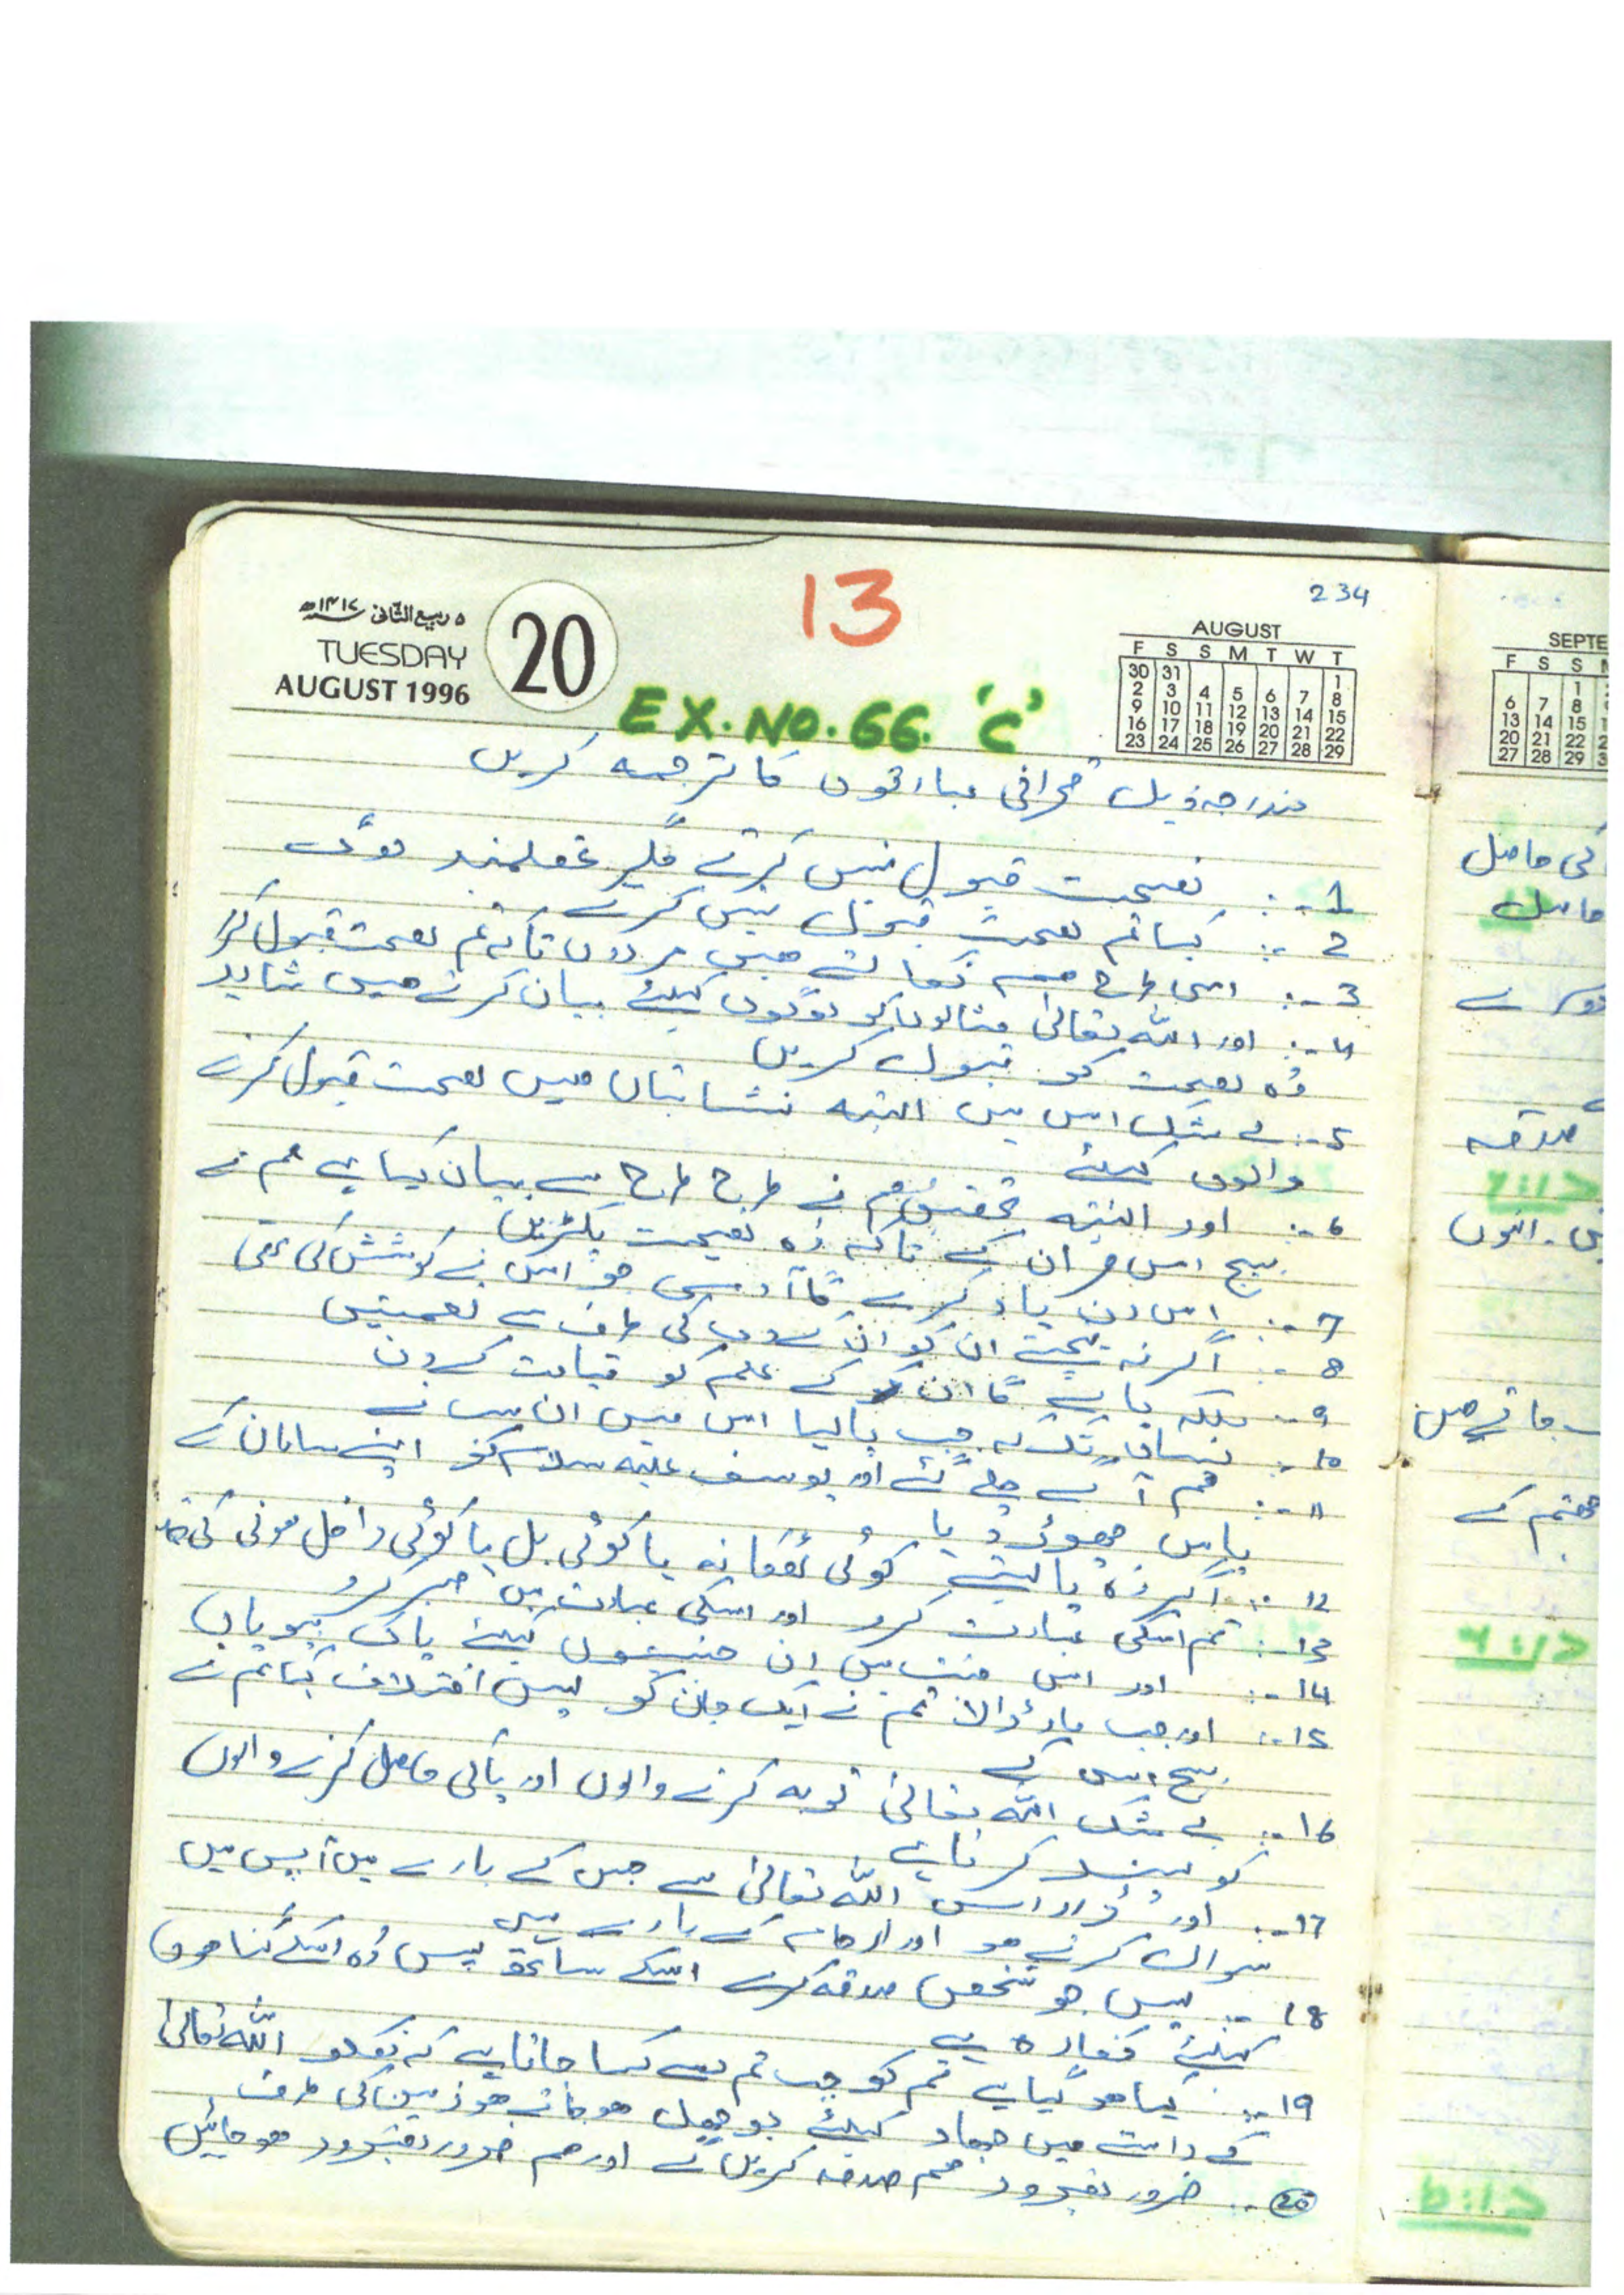 234
13
۵ ربیع الثانی ۱۴۱۷ھ
TUESDAY
AUGUST 1996
20
AUGUST
F S S M T W T
30 31 1
2 3 4 5 6 7 8
9 10 11 12 13 14 15
16 17 18 19 20 21 22
23 24 25 26 27 28 29
EX.NO.66. 'C'
مندرجہ ذیل قرآنی عبارتوں کا ترجمہ کریں
1 -: نصیحت قبول نہیں کرتے مگر عقلمند لوگ
2 -: کیا تم نصیحت قبول نہیں کرتے
3 -: اسی طرح ہم نکالتے ہیں مردوں کو تاکہ تم نصیحت قبول کرو
4 -: اور اللہ تعالیٰ مثالوں کو لوگوں کیلئے بیان کرتے ہیں شاید
وہ نصیحت کو قبول کریں
5 -: بے شک اس میں البتہ نشانیاں ہیں نصیحت قبول کرنے
والوں کیلئے
6 -: اور البتہ تحقیق ہم نے طرح طرح سے بیان کیا ہے ہم نے
بیچ اس قرآن کے تاکہ وہ نصیحت پکڑیں
7 -: اس دن یاد کرے گا آدمی جو اس نے کوشش کی تھی
8 -: اگر نہ پہنچتے ان کو ان کے رب کی طرف سے نعمتیں
9 -: بلکہ پا ہے گا ان کے علم کو قیامت کے دن
10 -: یہاں تک کہ جب پا لیا اس میں ان سب نے
11 -: ہم آگے چلے گئے اور یوسف علیہ سلام کو اپنے سامان کے
پاس چھوڑ دیا
12 -: اگر وہ پا لیتے کوئی ٹھکانہ یا کوئی بل یا کوئی داخل ہونے کی جگہ
13 -: تم اسکی عبادت کرو اور اسکی عبادت میں صبر کرو
14 -: اور اس جنت میں ان جنتیوں کیلئے پاک بیویاں
15 -: اور جب مار ڈالا تم نے ایک جان کو پس اختلاف کیا تم نے
بیچ اس کے
16 -: بے شک اللہ تعالیٰ توبہ کرنے والوں اور پاکی حاصل کرنے والوں
کو پسند کرتا ہے
17 -: اور ڈرو اس اللہ تعالیٰ سے جس کے بارے میں آپس میں
سوال کرتے ہو اور ارحام کے بارے میں
18 -: پس جو شخص صدقہ کرے اسکے ساتھ پس وہ اسکے گناہوں
کیلئے کفارہ ہے
19 -: کیا ہو گیا ہے تم کو جب تم سے کہا جاتا ہے کہ نکلو اللہ تعالیٰ
کے راستے میں جہاد کیلئے بوجھل ہو جاتے ہو زمین کی طرف
20 -: ضرور بضرور ہم صدقہ کریں گے اور ہم ضرور بضرور ہو جائیں
SEPTE
F S S
1
6 7 8
13 14 15
20 21 22
27 28 29
کی حاصل
حاصل
صدقہ
میں۔ انہوں
جاتے ہیں
جہنم کے